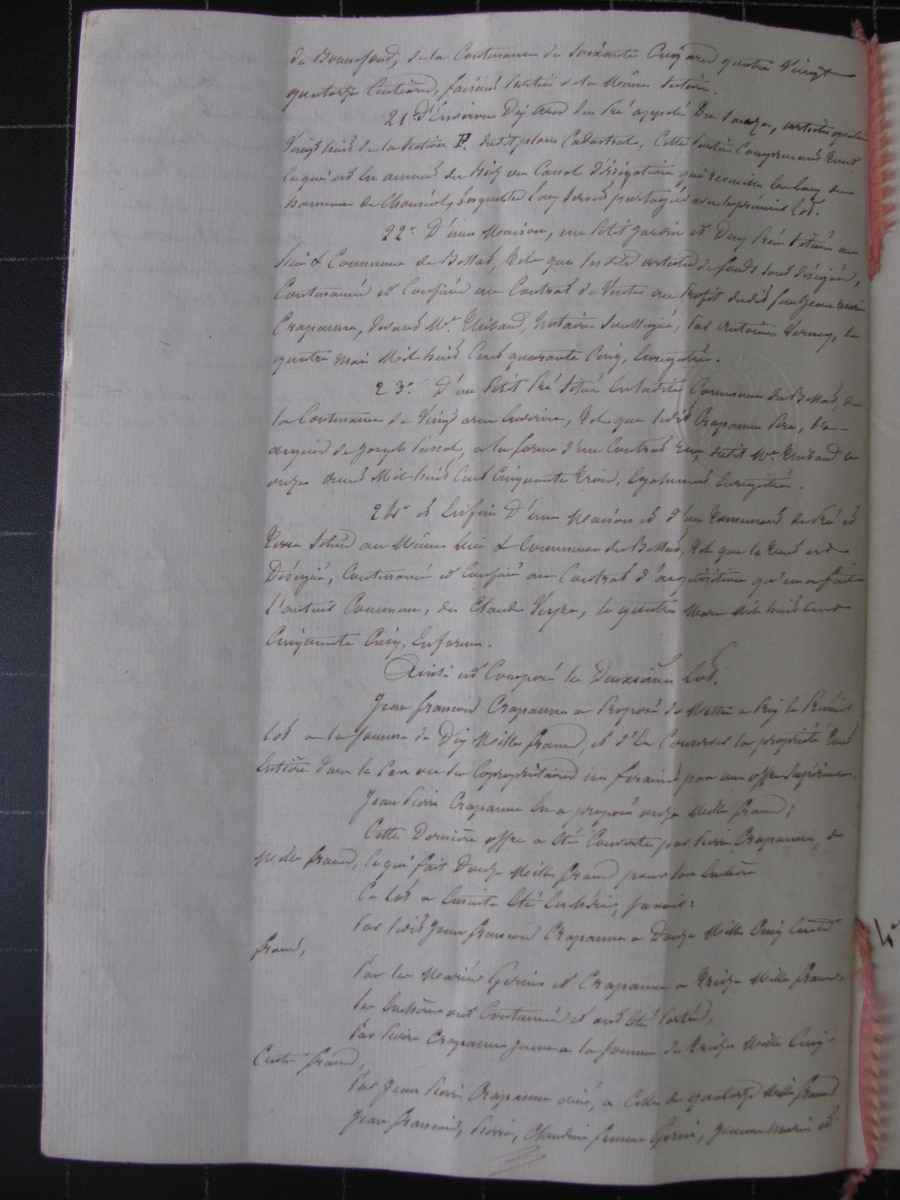 de Bonnefond, de la Contenance de soixante Cinq ares quatre Vingt
quatorze Centiares, faisant partie de la Même Section.
21° D'Environ Dix ares du Pré appelé Du
Vingt huit de la Section F. dudit plan Cadastral, Cette Portion Comprenant tout
ce qui est en amont de un Canal d'irrigation, qui les Eaux du
hameau de lesquelles Eaux seront partagées avec le premier lot.
22° D'une Maison, un Petit jardin et Du Pré Situés au
lieu & Commune de Bessat, tels que lesdits articles de fonds sont désignés,
Contenancés et Confinés au Contrat de Vente au Profit dudit feu Jean Marie
Crapanne, devant Me Thibaud, Notaire Soussigné, par Antoine Verney, le
quatre mai Mil huit Cent quarante Cinq, Enregistré.
23° D'un Petit Pré Situé En ladite Commune du Bessat, de
la Contenance de Vingt ares Environ, tel que ledit Crapanne Père, l'a
acquis de Joseph Pascal, a la forme d'un Contrat reçu dudit Me Thibaud le
onze août Mil huit Cent Cinquante Trois, Egalement Enregistré.
24° et Enfin D'une Maison et d'un Tenement de Pré et
Terre Situés au Même lieu & Commune du Bessat, tels que le tout est
Désigné, Contenancé et Confiné au Contrat d'acquisition qu'en a fait
l'auteur Commun, de Claude Veyre, le quatre Mars Mil huit Cent
Cinquante Cinq, En forme.
Ainsi est Composé le Deuxième Lot.
Jean François Crapanne a Proposé de Mettre a Prix le Premier
lot a la Somme de Dix Mille francs, et d'En Conserver la propriété Tout
Entière dans le Cas où les Copropriétaires ne feraient pas une offre Supérieure.
Jean Pierre Crapanne En a proposé onze Mille francs;
Cette Dernière offre a été Couverte par Pierre Crapanne, de
Mille francs, ce qui fait Douze Mille francs pour son Enchère
Ce lot a Ensuite été Enchéri, Savoir:
Par ledit Jean François Crapanne a Douze Mille Cinq Cents
francs,
Par les Mariés Gerin et Crapanne a Treize Mille francs.
les Enchères ont Continué et ont été Portées,
Par Pierre Crapanne jeune a la Somme de Treize Mille Cinq
Cents francs,
Par Jean Pierre Crapanne ainé, a Celle de quatorze Mille francs
Jean François, Pierre, Claudine femme Gerin, Jeanne Marie et